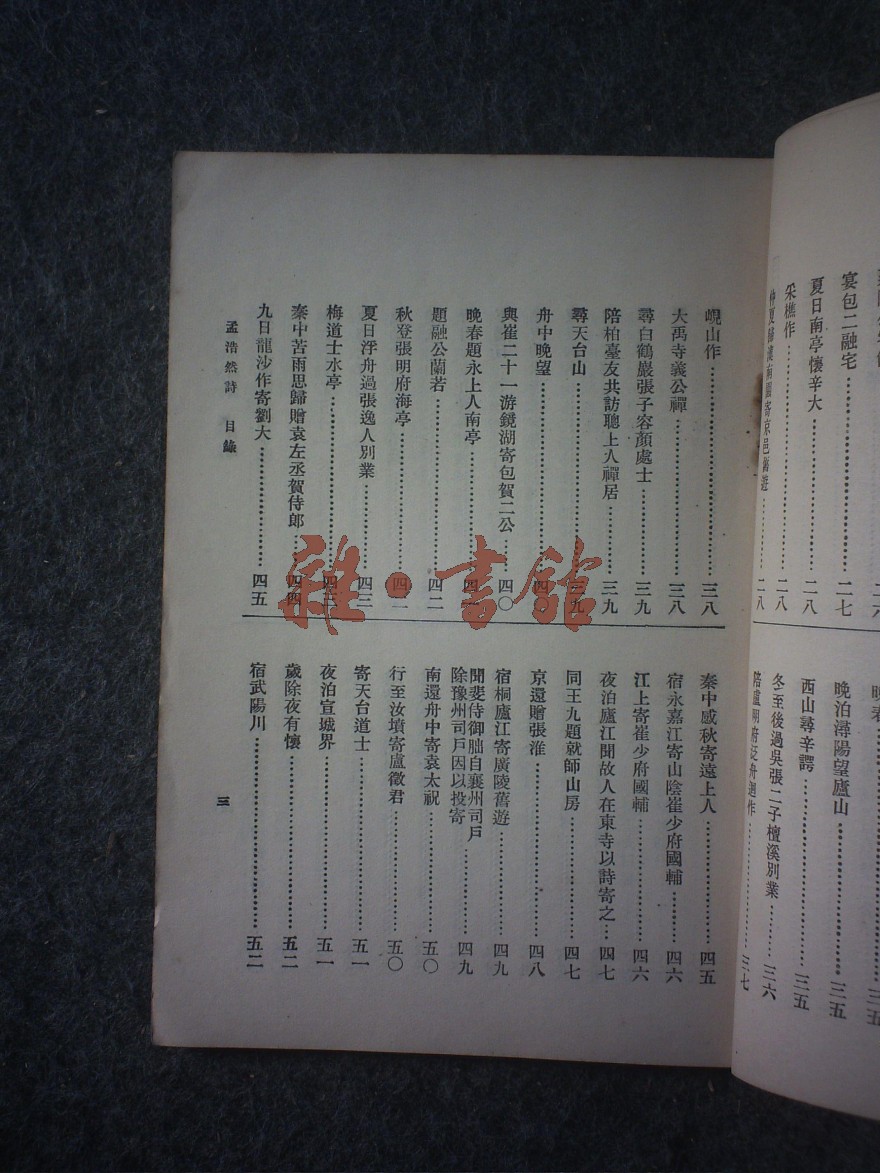 宴包二融宅………二七
夏日南亭懷辛大………二八
采樵作………二八
晚泊潯陽望廬山………三五
西山尋辛諤………三五
冬至後過吳張二子檀溪別業………三六
陪盧明府泛舟迴作………三七
峴山作………三八
大禹寺義公禪………三八
尋白鶴巖張子容顏處士………三九
陪柏臺友共訪聰上人禪居………三九
尋天台山………三九
舟中晚望………四〇
與崔二十一游鏡湖寄包賀二公………四〇
晚春題永上人南亭………四一
題融公蘭若………四二
秋登張明府海亭………四二
夏日浮舟過張逸人別業………四三
梅道士水亭………四三
秦中苦雨思歸贈袁左丞賀侍郎………四四
九日龍沙作寄劉大………四五
秦中感秋寄遠上人………四五
宿永嘉江寄山陰崔少府國輔………四六
江上寄崔少府國輔………四六
夜泊廬江聞故人在東寺以詩寄之…四七
同王九題就師山房………四七
京還贈張淮………四八
宿桐廬江寄廣陵舊遊………四九
聞裴侍御朏自襄州司戶
除豫州司戶因以投寄………四九
南還舟中寄袁太祝………五〇
行至汝墳寄盧徵君………五〇
寄天台道士………五一
夜泊宣城界………五一
歲除夜有懷………五二
宿武陽川………五二
孟浩然詩 目錄
三
雜·書館